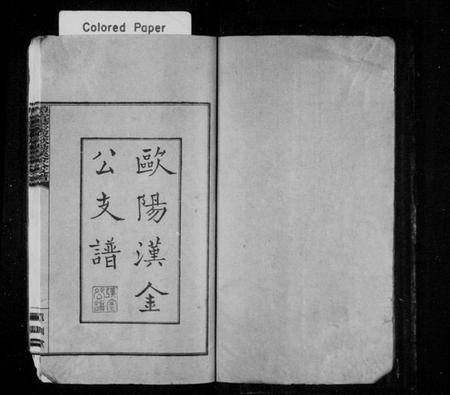 Colored Paper
歐陽漢金
公支譜